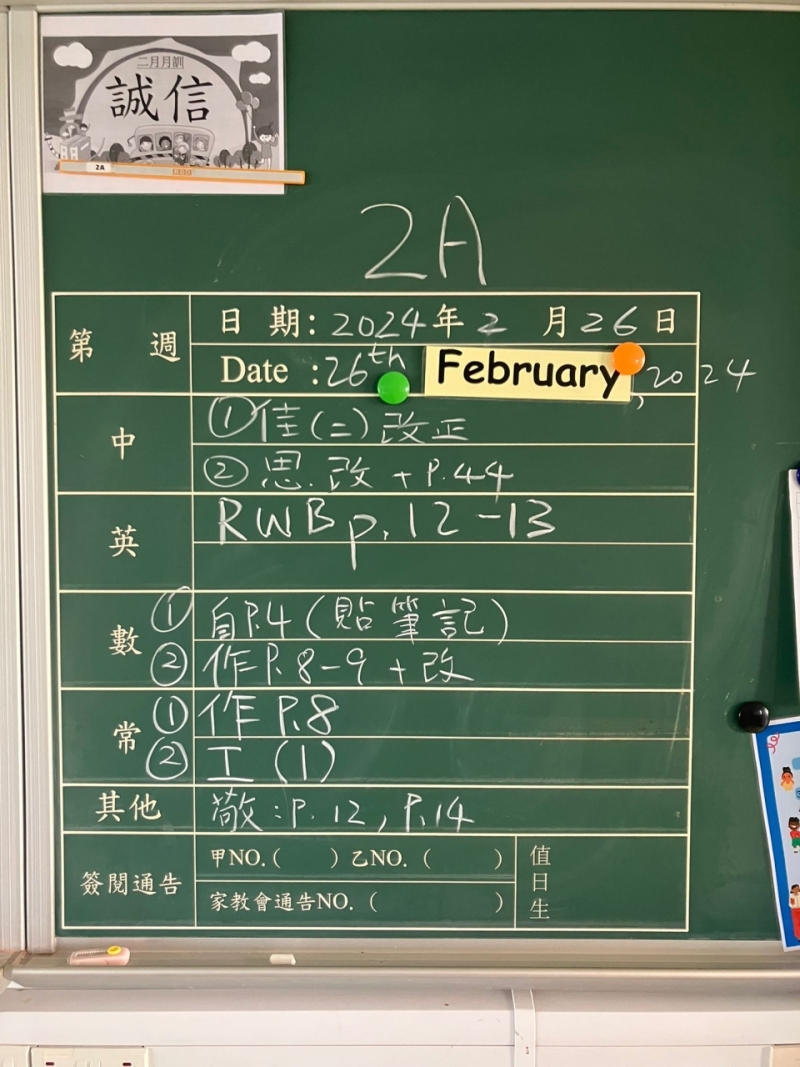 二月月訓
誠信
2A
2A
第 週
日 期: 2024 年 2 月 26 日
Date : 26th February, 2024
中
① 佳(二)改正
② 思.改 + P.44
英
RWB p.12-13
數
① 自P.4 (貼筆記)
② 作P.8-9 + 改
常
① 作 P.8
② 工 (1)
其他
敬:P.12, P.14
簽閱通告
甲NO.( ) 乙NO. ( )
家教會通告NO. ( )
值日生